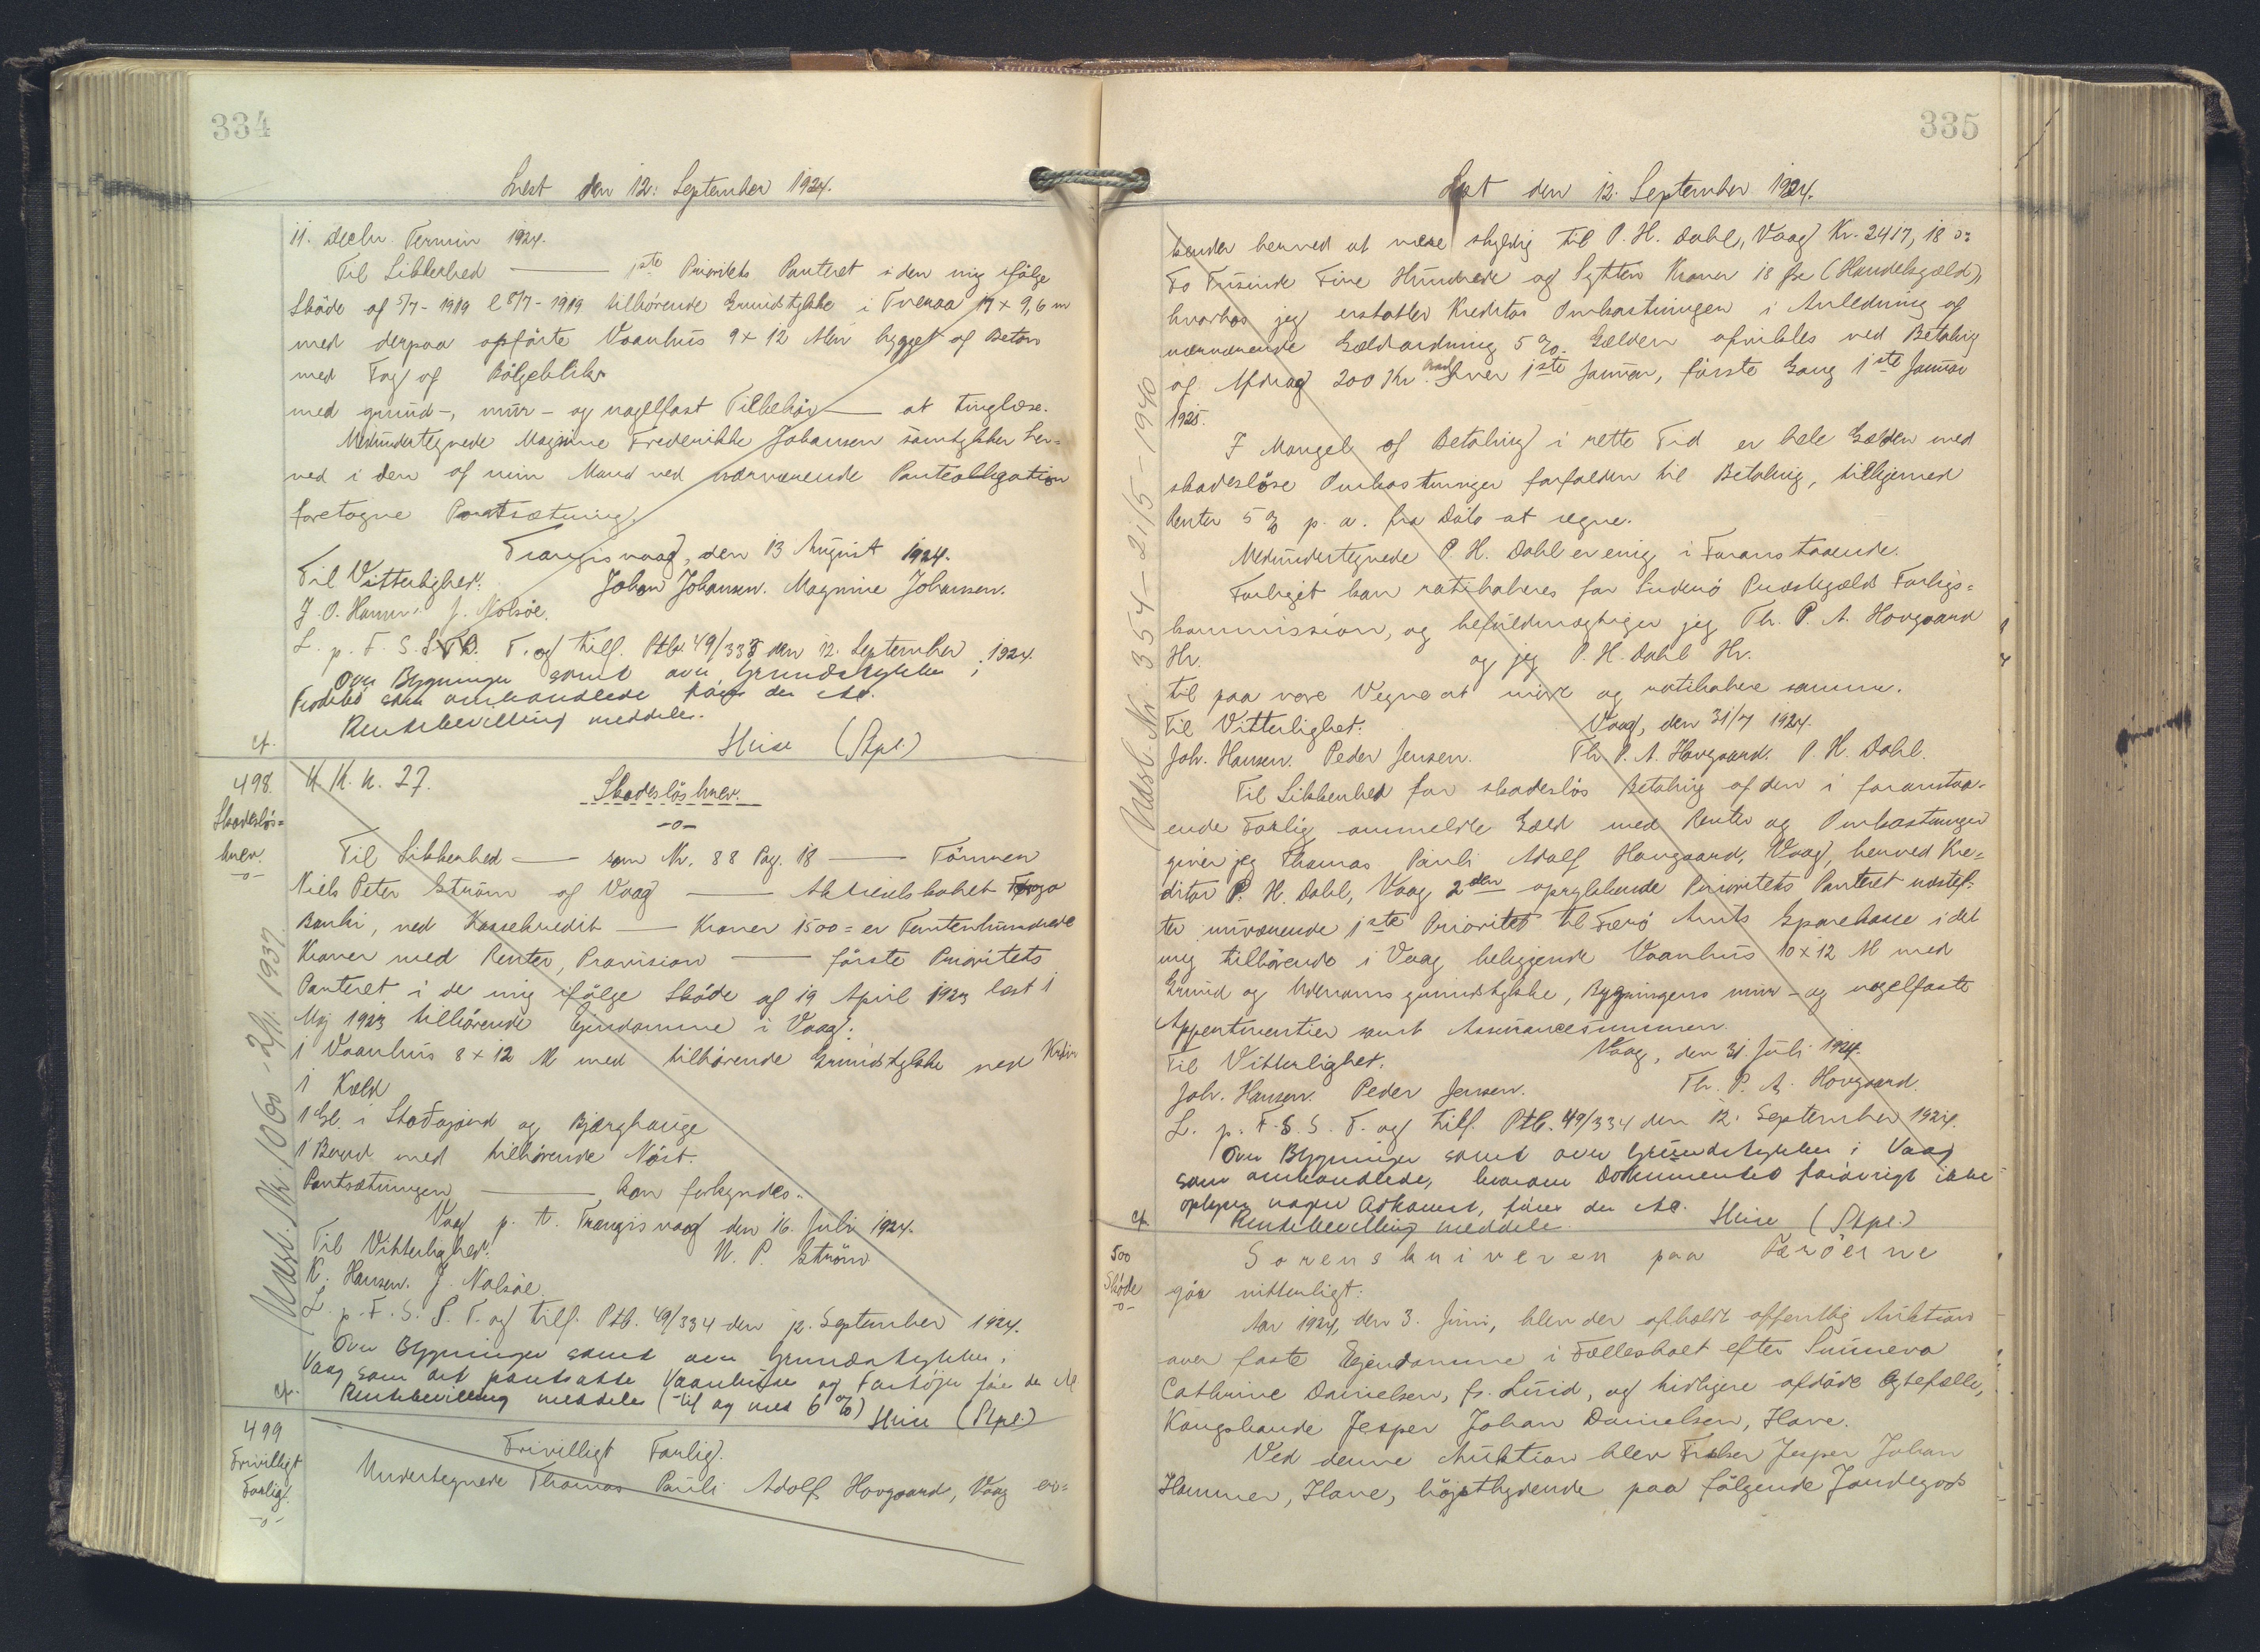 334
Læst den 12. September 1924.
11. Decbr. Termin 1924.
Til Sikkerhed — 1ste Prioritets Panteret i den mig ifølge
Skøde af 5/7-1919 l 8/7-1919 tilhørende Grundstykke i Tveraa 17 x 9,6 m
med derpaa opførte Vaanhus 9 x 12 Alen bygget af Beton
med Tag af Bölgeblik
med grund-, mur- og nagelfast Tilbehør — at tinglæse.
Medundertegnede Magnine Frederikke Johansen samtykker her=
ved i den af min Mand ved nærværende Panteobligation
foretagne Pantsætning.
Trangisvaag, den 13 August 1924.
Til Vitterlighed: Johan Johansen. Magnine Johansen.
J. O. Hansen. J. Nolsöe.
L. p. F. S. S. T. og tilf. Ptb. 49/333 den 12. September 1924.
Over Bygninger samt over Grundstykker i
Frodebö som omhandlede fører der Ad.
Rentebevilling meddeles.
cf. Heise (Stpl.)
498. K. K. n. 27. Skadesløsbrev.
Skadesløs=
brev. -o-
-o-
Til Sikkerhed — som Nr. 88 Pag. 18 — Tömren
Niels Peter Ström af Vaag — Aktieselskabet Færø
Banki, ved Kassekredit — Kroner 1500 = er Femtenhundrede
Kroner med Renter, Provision — første Prioritets
Panteret i de mig ifølge Skøde af 19 April 1923 læst 1
Maj 1923 tilhørende Ejendomme i Vaag:
1 Vaanhus 8 x 12 Al med tilhørende Grundstykke ved
1 Kæld
1 Gl. i Stoðagjord og Bjærghauge
1 Baad med tilhørende Nöst.
Pantsætningen — kan forkyndes.
Vaag p. t. Trangisvaag den 16. Juli 1924.
Til Vitterlighed: N. P. Ström
K. Hansen. J. Nolsöe.
L. p. F. S. S. T. og tilf. Ptb. 49/334 den 12. September 1924.
Over Bygninger samt over Grundstykker i
Vaag som det pantsatte Vaanhuse og Fartøjer fører der Ad
cf. Rentebevilling meddeles (til og med 6%) Heise (Stpl.)
Udsl. Nr. 1060 - 2/11. 1937.
499 Frivilligt Forlig.
Frivilligt
Forlig.
-o-
Undertegnede Thomas Pauli Adolf Hovgaard, Vaag er=
335
Læst den 12. September 1924.
kender herved at være skyldig til P. H. Dahl, Vaag Kr. 2417, 18 Ø:
To Tusinde Fire Hundrede og Sytten Kroner 18 Øre (Handelsgæld),
hvorhos jeg erstatter Kreditor Omkostningen i Anledning af
nærværende Gældordning 5%. Gælden afvikles ved Betaling
af Afdrag 200 Kr. hver 1ste Januar, første Gang 1ste Januar
1925.
I Mangel af Betaling i rette Tid er hele Gælden med
skadesløse Omkostninger forfalden til Betaling, tilligemed
Renter 5% p. a. fra Dato at regne.
Medundertegnede P. H. Dahl er enig i Foranstaaende.
Forliget kan ratihaberes for Suderö Pudskgæld Forligs=
kommission, og befuldmægtiger jeg Th. P. A. Hovgaard
Hr. og jeg P. H. Dahl Hr.
til paa vore Vegne at møde og ratihabere samme.
Til Vitterlighet: Vaag, den 31/7 1924.
Joh. Hansen. Peder Jensen. Th. P. A. Hovgaard. P. H. Dahl.
Til Sikkerhed for skadesløs Betaling af den i foranstaa=
ende Forlig ommeldte Gæld med Renter og Omkostninger
giver jeg Thomas Pauli Adolf Hovgaard, Vaag, herved Kre=
ditor P. H. Dahl, Vaag 2den oprykkende Prioritets Panteret næstef=
ter nuværende 1ste Prioritet til Færö Amts Sparekasse i det
mig tilhørende i Vaag beliggende Vaanhus 10 x 12 Al med
Grund og Udenoms grundstykke, Bygningens mur- og nagelfaste
Appertinentier samt Assurancesummen.
Vaag, den 31. Juli 1924.
Til Vitterlighet:
Joh. Hansen. Peder Jensen. Th. P. A. Hovgaard.
L. p. F. S. S. T. og tilf. Ptb. 49/334 den 12. September 1924.
Over Bygninger samt over Grundstykker i Vaag
som omhandlede, hvorom Dokumentet forøvrigt ikke
oplyser nogen Adkomst, fører der Ad.
cf. Rentebevilling meddeles Heise (Stpl.)
Udsl. Nr. 354 - 21/5-1940
500 Sorenskriveren paa Færöerne
Skøde
-o-
gør vitterligt:
Aar 1924, den 3. Juni, blev der afholdt offentlig Auktion
over faste Ejendomme i Fællesboet efter Sunneva
Cathrine Danielsen, fr. Lüid, og tidligere afdøde Ægtefælle,
Kongsbonde Jesper Johan Danielsen, Hove.
Ved denne Auktion blev Fisker Jesper Johan
Hammer, Hove, højstbydende paa følgende Jordegods